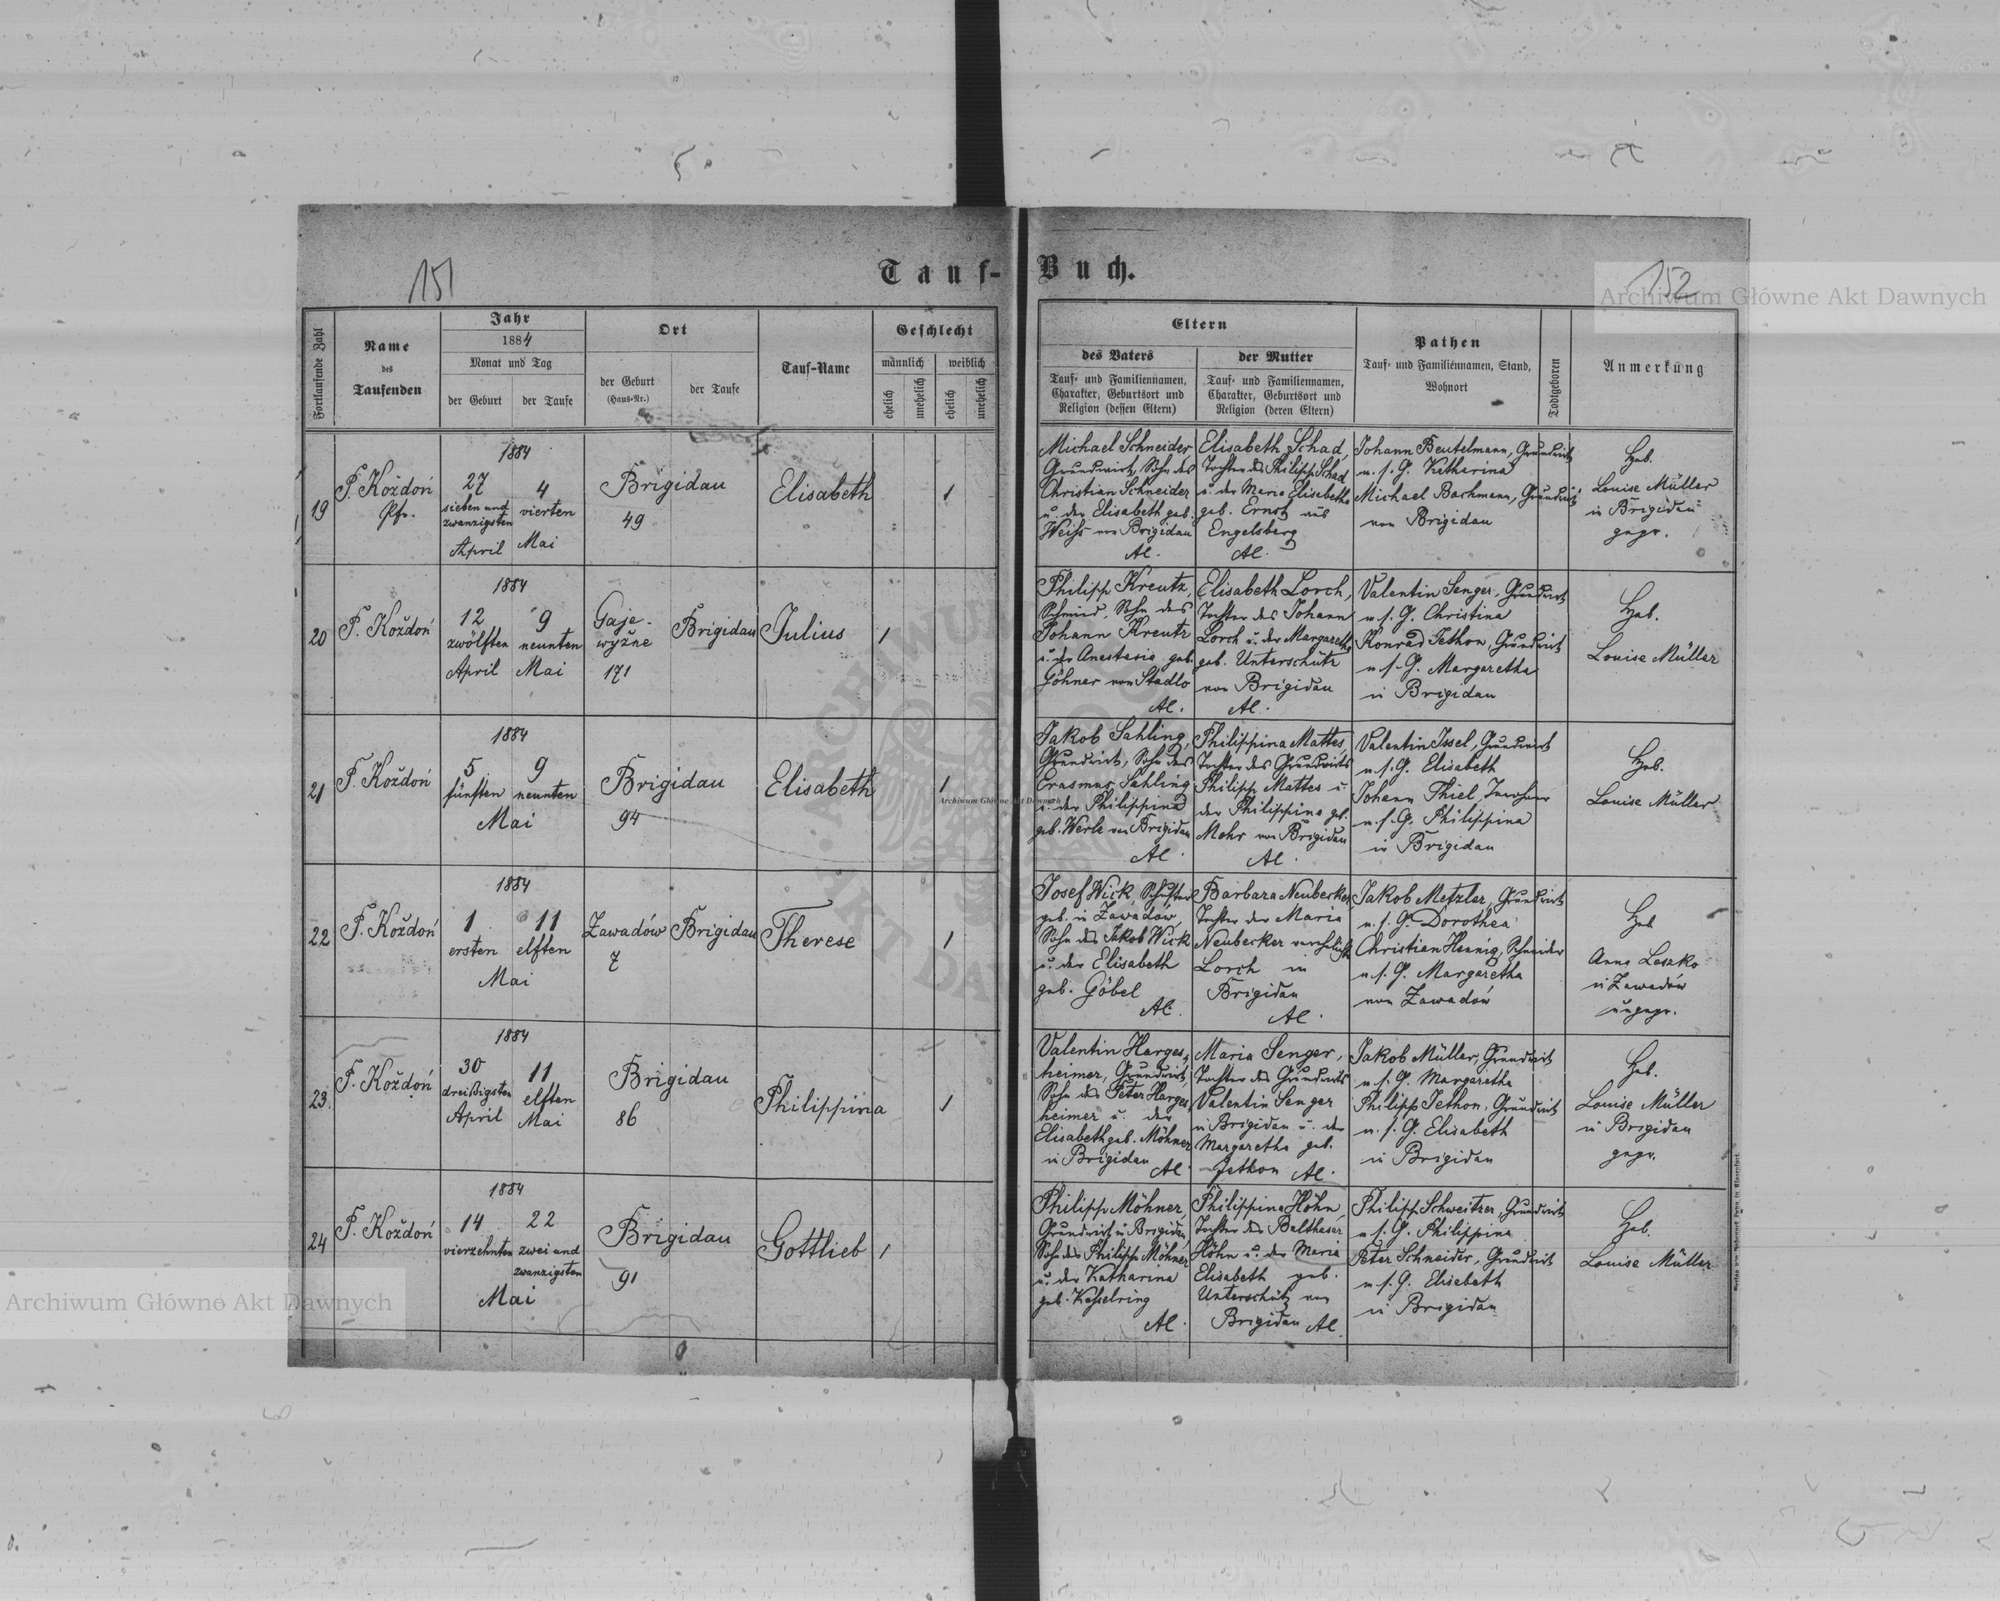 151
Tauf-
Buch.
152
Archiwum Główne Akt Dawnych
Fortlaufende Zahl
Name
des
Taufenden
Jahr
1884
Monat und Tag
der Geburt
der Taufe
Ort
der Geburt
(Haus-Nr.)
der Taufe
Tauf-Name
Geschlecht
männlich
weiblich
ehelich
unehelich
ehelich
unehelich
Eltern
des Vaters
Tauf- und Familiennamen,
Charakter, Geburtsort und
Religion (dessen Eltern)
der Mutter
Tauf- und Familiennamen,
Charakter, Geburtsort und
Religion (deren Eltern)
Pathen
Tauf- und Familiennamen, Stand,
Wohnort
Todtgeboren
Anmerkung
19
F. Koždoń
Pfr.
1884
27
sieben und
zwanzigsten
April
4
vierten
Mai
Brigidau
49
Elisabeth
1
Michael Schneider
Grundwirt, Sohn des
Christian Schneider
u. der Elisabeth geb.
Weiss von Brigidau
AC.
Elisabeth Schad,
Tochter des Philipp Schad
u. der Maria Elisabetha
geb. Ernst aus
Engelsberg
AC.
Johann Beutelmann, Grundwirt
u. s. G. Katharina
Michael Bachmann, Grundwirt
von Brigidau
Heb.
Louise Müller
in Brigidau
gepr.
20
F. Koždoń
1884
12
zwölften
April
9
neunten
Mai
Gaje-
wyžne
171
Brigidau
Julius
1
Philipp Kreutz,
Schmied, Sohn des
Johann Kreutz
u. der Anastasia geb.
Göhner von Stadlo
AC.
Elisabeth Lorch,
Tochter des Johann
Lorch u. der Margaretha
geb. Unterschütz
von Brigidau
AC.
Valentin Senger, Grundwirt
u. s. G. Christina
Konrad Jethon, Grundwirt
u. s. G. Margaretha
in Brigidau
Heb.
Louise Müller
21
F. Koždoń
1884
5
fünften
9
neunten
Mai
Brigidau
94
Elisabeth
1
Jakob Sahling,
Grundwirt, Sohn des
Erasmus Sahling
u. der Philippina
geb. Werle von Brigidau
AC.
Philippina Mattes,
Tochter des Grundwirts
Philipp Mattes u.
der Philippina geb.
Mohr von Brigidau
AC.
Valentin Issel, Grundwirt
u. s. G. Elisabeth
Johann Thiel, Inwohner
u. s. G. Philippina
in Brigidau
Heb.
Louise Müller
22
F. Koždoń
1884
1
ersten
11
elften
Mai
Zawadów
7
Brigidau
Therese
1
Josef Wick, Schuster
geb. in Zawadów,
Sohn des Jakob Wick
u. der Elisabeth
geb. Göbel
AC.
Barbara Neubecker,
Tochter der Maria
Neubecker verehelichte
Lorch in
Brigidau
AC.
Jakob Metzler, Grundwirt
u. s. G. Dorothea
Christian Hennig, Schneider
u. s. G. Margaretha
von Zawadów
Heb
Anna Lesko
in Zawadów
ungepr.
23.
F. Koždoń
1884
30
dreißigsten
April
11
elften
Mai
Brigidau
86
Philippina
1
Valentin Harges-
heimer, Grundwirt,
Sohn des Peter Harges
heimer u. der
Elisabeth geb. Möhner
in Brigidau
AC.
Maria Senger,
Tochter des Grundwirts
Valentin Senger
in Brigidau u. der
Margaretha geb.
Jethon AC.
Jakob Müller, Grundwirt
u. s. G. Margaretha
Philipp Jethon, Grundwirt
u. s. G. Elisabeth
in Brigidau
Heb.
Louise Müller
in Brigidau
gepr.
24
F. Koždoń
1884
14
vierzehnten
22
zwei und
zwanzigsten
Mai
Brigidau
91
Gottlieb
1
Philipp Möhner,
Grundwirt in Brigidau,
Sohn des Philipp Möhner
u. der Katharina
geb. Kesselring
AC.
Philippina Höhn,
Tochter des Balthasar
Höhn u. der Maria
Elisabeth geb.
Unterschütz von
Brigidau AC.
Philipp Schweitzer, Grundwirt
u. s. G. Philippina
Peter Schneider, Grundwirt
u. s. G. Elisabeth
in Brigidau
Heb.
Louise Müller
Archiwum Główne Akt Dawnych
Archiwum Główne Akt Dawnych